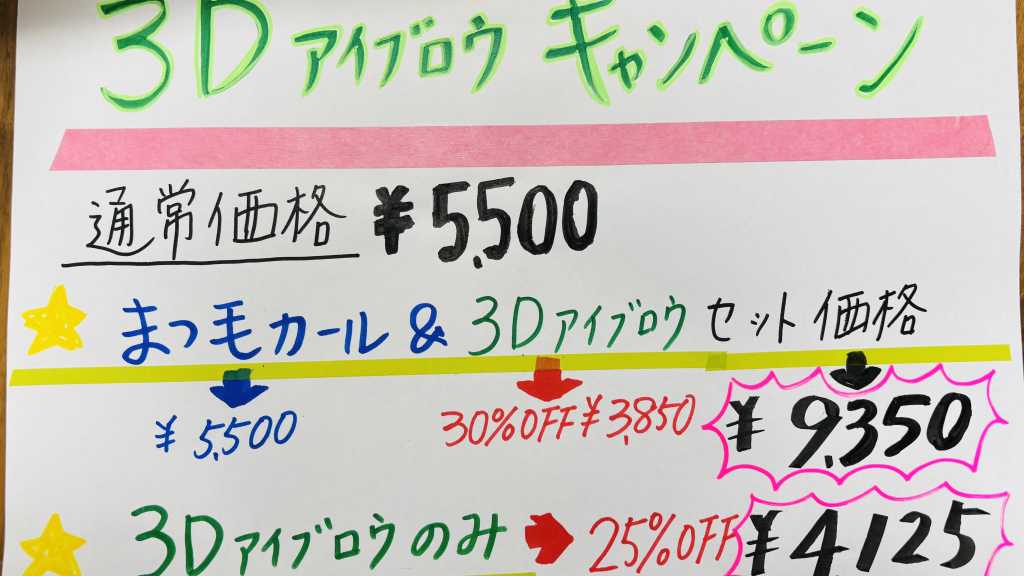 3D アイブロウ キャンペーン
通常価格 ¥5,500
まつ毛カール & 3Dアイブロウ セット価格
¥5,500 30%OFF ¥3,850 ¥9,350
3Dアイブロウのみ 25%OFF ¥4,125